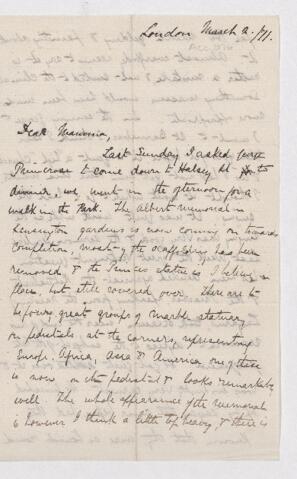 London March 2. /71.
Dear Mamma,
Last Sunday I asked
Primrose to come down to Halsey St to
dinner, we went in the afternoon for a
walk in the Park. The Albert memorial in
Kensington gardens is now coming on towards
completion, most of the scaffolding has been
removed & the Princes statue is I believe in
place, but still covered over. There are to
be four great groups of marble statuary
on pedestals at the corners, representing
Europe, Africa, Asia & America one of these
is now on its pedestal & looks remarkably
well. The whole appearance of the memorial
is however I think a little top heavy & there is